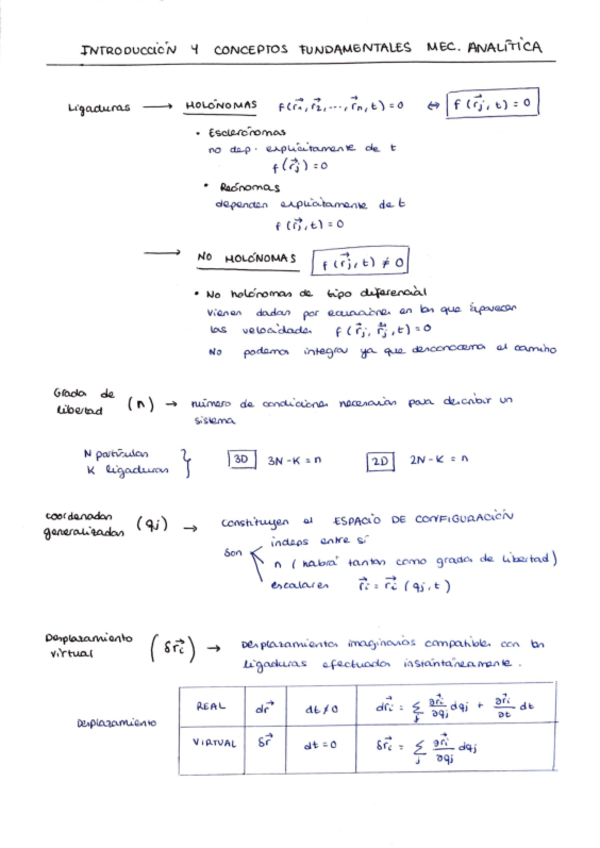 INTRODUCCIÓN Y CONCEPTOS FUNDAMENTALES MEC. ANALÍTICA
Ligaduras → HOLÓNOMAS f(r⃗₁, r⃗₂, ..., r⃗ₙ, t) = 0 ⇔ f(r⃗j, t) = 0
• Esclerónomas
no dep. explícitamente de t
f(r⃗j) = 0
• Reónomas
dependen explícitamente de t
f(r⃗j, t) = 0
→ NO HOLÓNOMAS f(r⃗j, t) ≠ 0
• No holónomas de tipo diferencial
Vienen dadas por ecuaciones en las que aparecen
las velocidades f(r⃗j, ṙ⃗j, t) = 0
No podemos integrar ya que desconocemos el camino
Grados de
libertad (n) → número de condiciones necesarias para describir un
sistema
N partículas
K ligaduras } 3D 3N-K = n 2D 2N-K = n
coordenadas
generalizadas (qj) → Constituyen el ESPACIO DE CONFIGURACIÓN
Son indeps entre sí
n (habrá tantas como grados de libertad)
escalares r⃗i = r⃗i (qj, t)
Desplazamiento
virtual (δr⃗i) → Desplazamientos imaginarios compatibles con las
ligaduras efectuados instantáneamente.
Desplazamiento
REAL dr⃗ dt ≠ 0 dr⃗i = Σj ∂r⃗i/∂qj dqj + ∂r⃗i/∂t dt
VIRTUAL δr⃗ dt = 0 δr⃗i = Σj ∂r⃗i/∂qj dqj